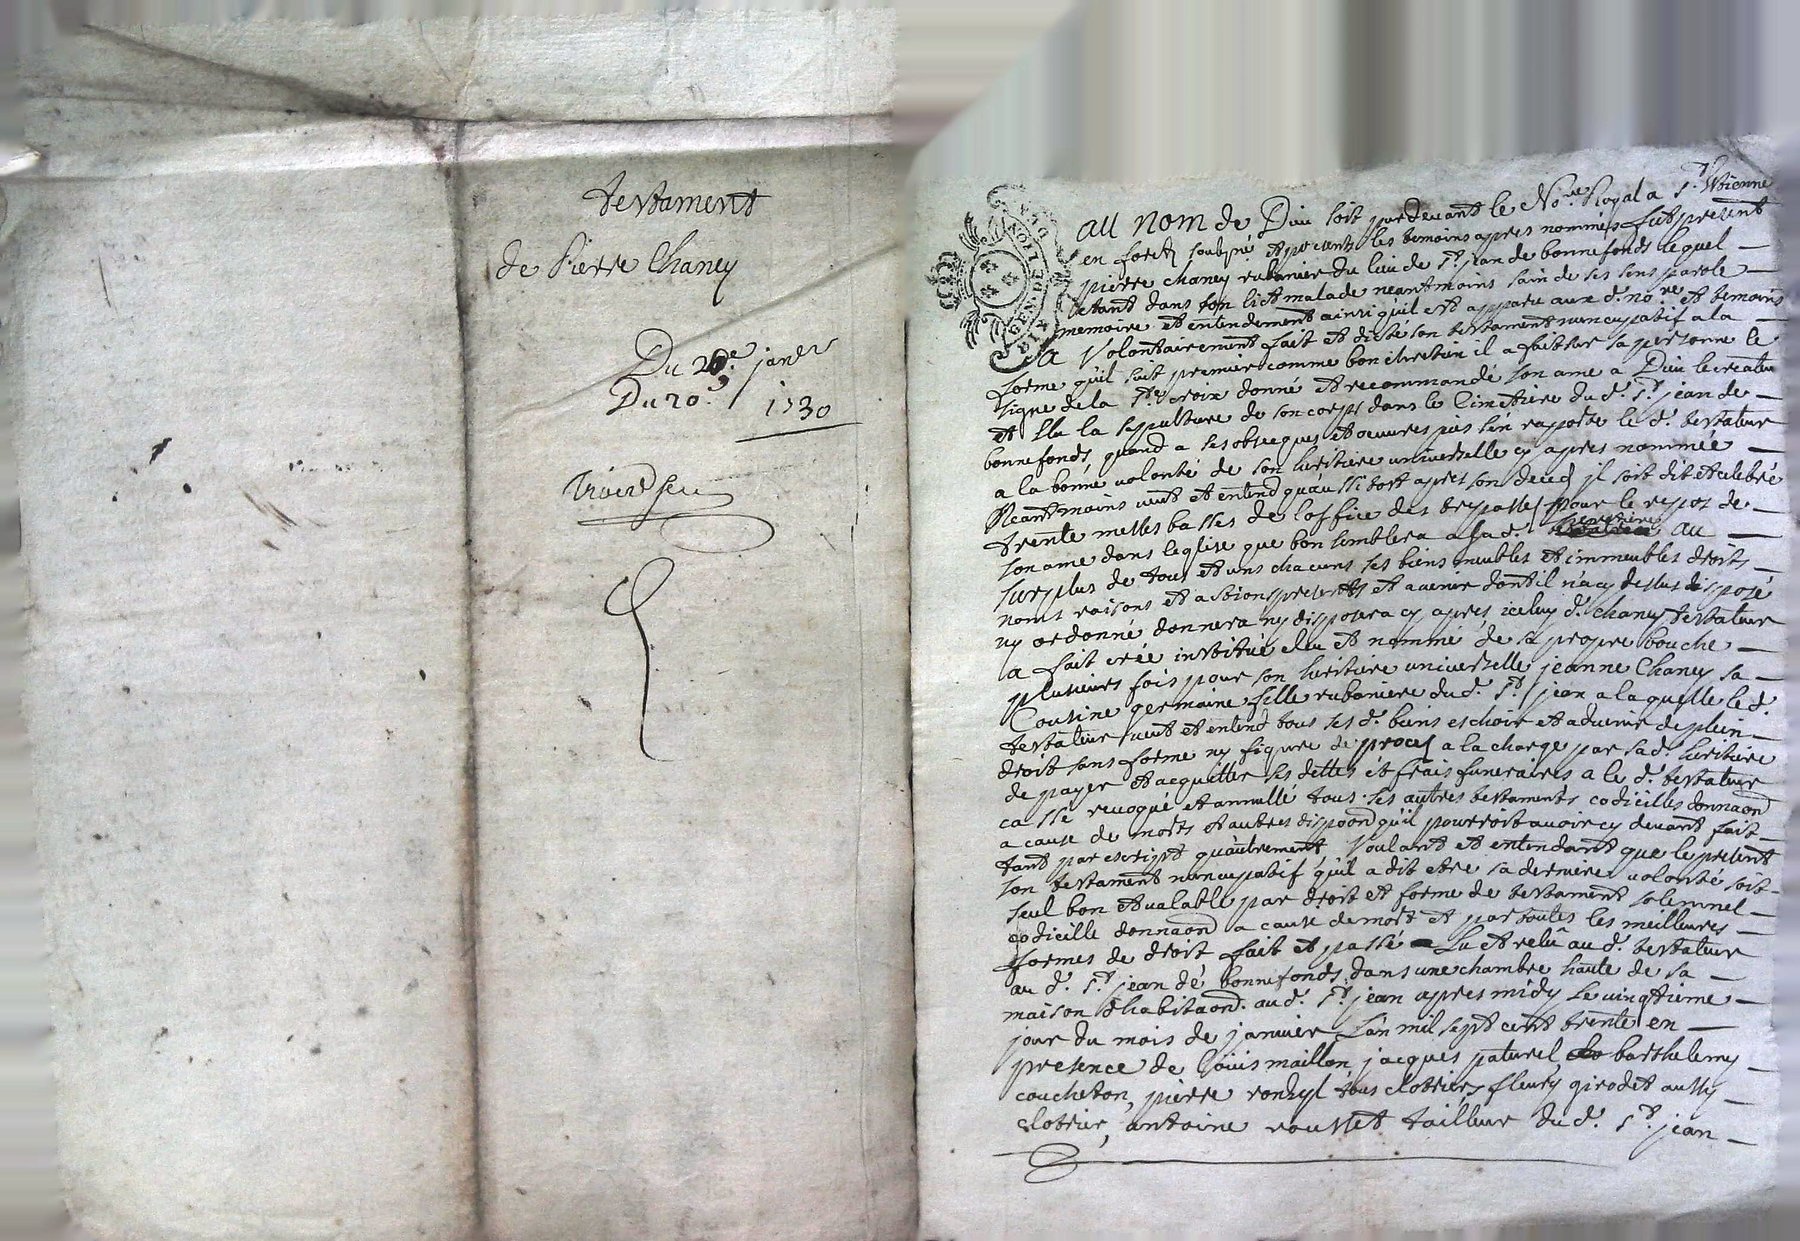 testament
de Pierre Chaney
Du 20e janer
Du 20.
1730
GEN. DE LION
au nom de Dieu soit pardevant le Nore Royal a St Etienne
en forest soubsné et presents les temoins apres nommés fut present
pierre chaney rubanier du lieu de St jean de bonnefonds lequel
etant dans son lict malade neantmoins sain de ses sens parole
memoire et entendement ainsi qu'il est apparu aux d. nore et temoins
a volontairement fait et dicté son testament nuncupatif a la
forme qu'il suit premier comme bon chretien il a fait sur sa personne le
signe de la Ste croix donné et recommandé son ame a Dieu le createur
et Elu la sepulture de son corps dans le Cimetiere du d. St jean de
bonnefonds, quand a ses obseques et oeuvres pies s'en raporte le d. testateur
a la bonne volonté de son heritiere universelle cy apres nommée
Neantmoins veut et entend qu'aussitost apres son deced il soit dit et celebré
trente messes basses de l'office des trepassés pour le repos de
son ame dans l'eglise que bon semblera a sa d. heritiere au
surplus de tous et uns chacuns ses biens meubles et immeubles droits
noms raisons et actions presents et avenir dont il n'a cy dessus disposé
ny ordonné donnera ny disposera cy apres, iceluy d. chaney testateur
a fait créé institue elu et nommé de sa propre bouche
plusieurs fois pour son heritiere universelle jeanne Chaney sa
Cousine germaine fille rubaniere du d. St jean a laquelle le d.
testateur veut et entend tous ses d. biens eschoir et advenir de plein
droit sans forme ny figure de proces a la charge par sa d. heritiere
de payer et acquitter ses dettes et frais funeraires a le d. testateur
cassé revoqué et annullé tous ses autres testaments codicilles donnaond
a cause de morts et autres dispoond qu'il pourroit avoir cy devant fait
tant par escript qu'autrement, Voulant et entendant que le present
son testament nuncupatif qu'il a dit etre sa derniere volonté soit
seul bon et valable par droit et forme de testament solemnel
codicille donnaond a cause de mort et par toutes les meilleures
formes de droit fait et passé Lu et relû au d. testateur
au d. St jean de bonnefonds dans une chambre haute de sa
maison d'habitaond. au d. St jean apres midy le vingtieme
jour du mois de janvier L'an mil sept cent trente en
presence de Loüis maillon, jacques paturel, barthelemy
coucheton, pierre ronzyl tous clotriers, fleury girodet aussy
clotrier, antoine rousset tailleur du d. St jean